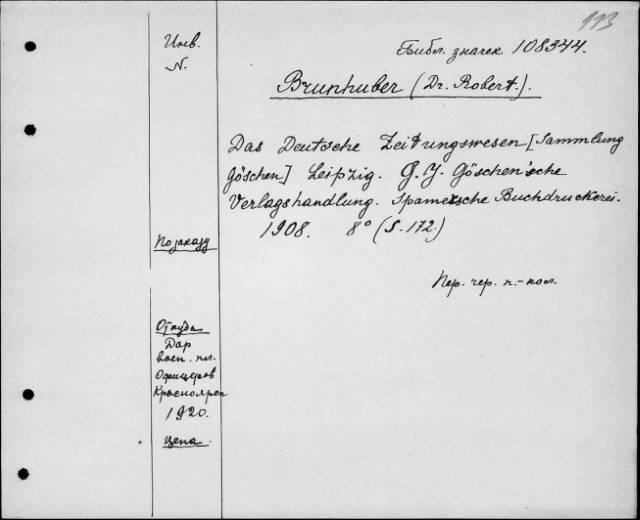 113
Инв.
N.
Библ. значек 108344.
Brunhuber (Dr. Robert.).
Das Deutsche Zeitungswesen [Sammlung
Göschen] Leipzig. G. J. Göschen'sche
Verlagshandlung. Spamersche Buchdruckerei.
1908. 8° (S. 172.)
По заказу
Пер. чер. п.-кол.
Откуда
Дар
воен. пл.
Офицеров
Красноярск
1920.
Цена.